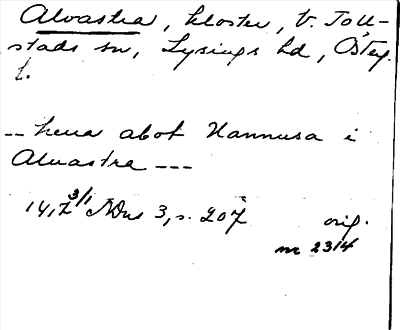 Alvastra, kloster, V. Toll-
stads sn, Lysings hd, Östg.
l.
-- herra abot Hannusa i
Aluastra ---
14,7 3/1 NDns 3, s. 207 orig.
nr 2314